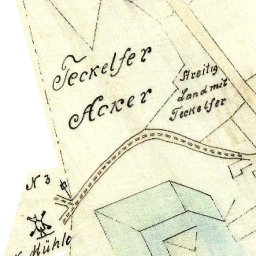 Teckelser
Acker
Streitig
Land mit
Teckelser
N 3
Mühle